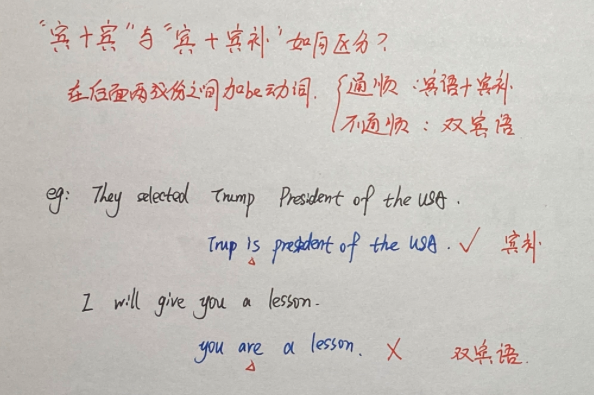 "宾十宾"与"宾+宾补"如何区分?
在后面两成份之间加be动词. { 通顺:宾语+宾补
不通顺:双宾语
eg: They selected Trump President of the USA.
Trup is president of the USA. ✓ 宾补
I will give you a lesson.
you are a lesson. X 双宾语.